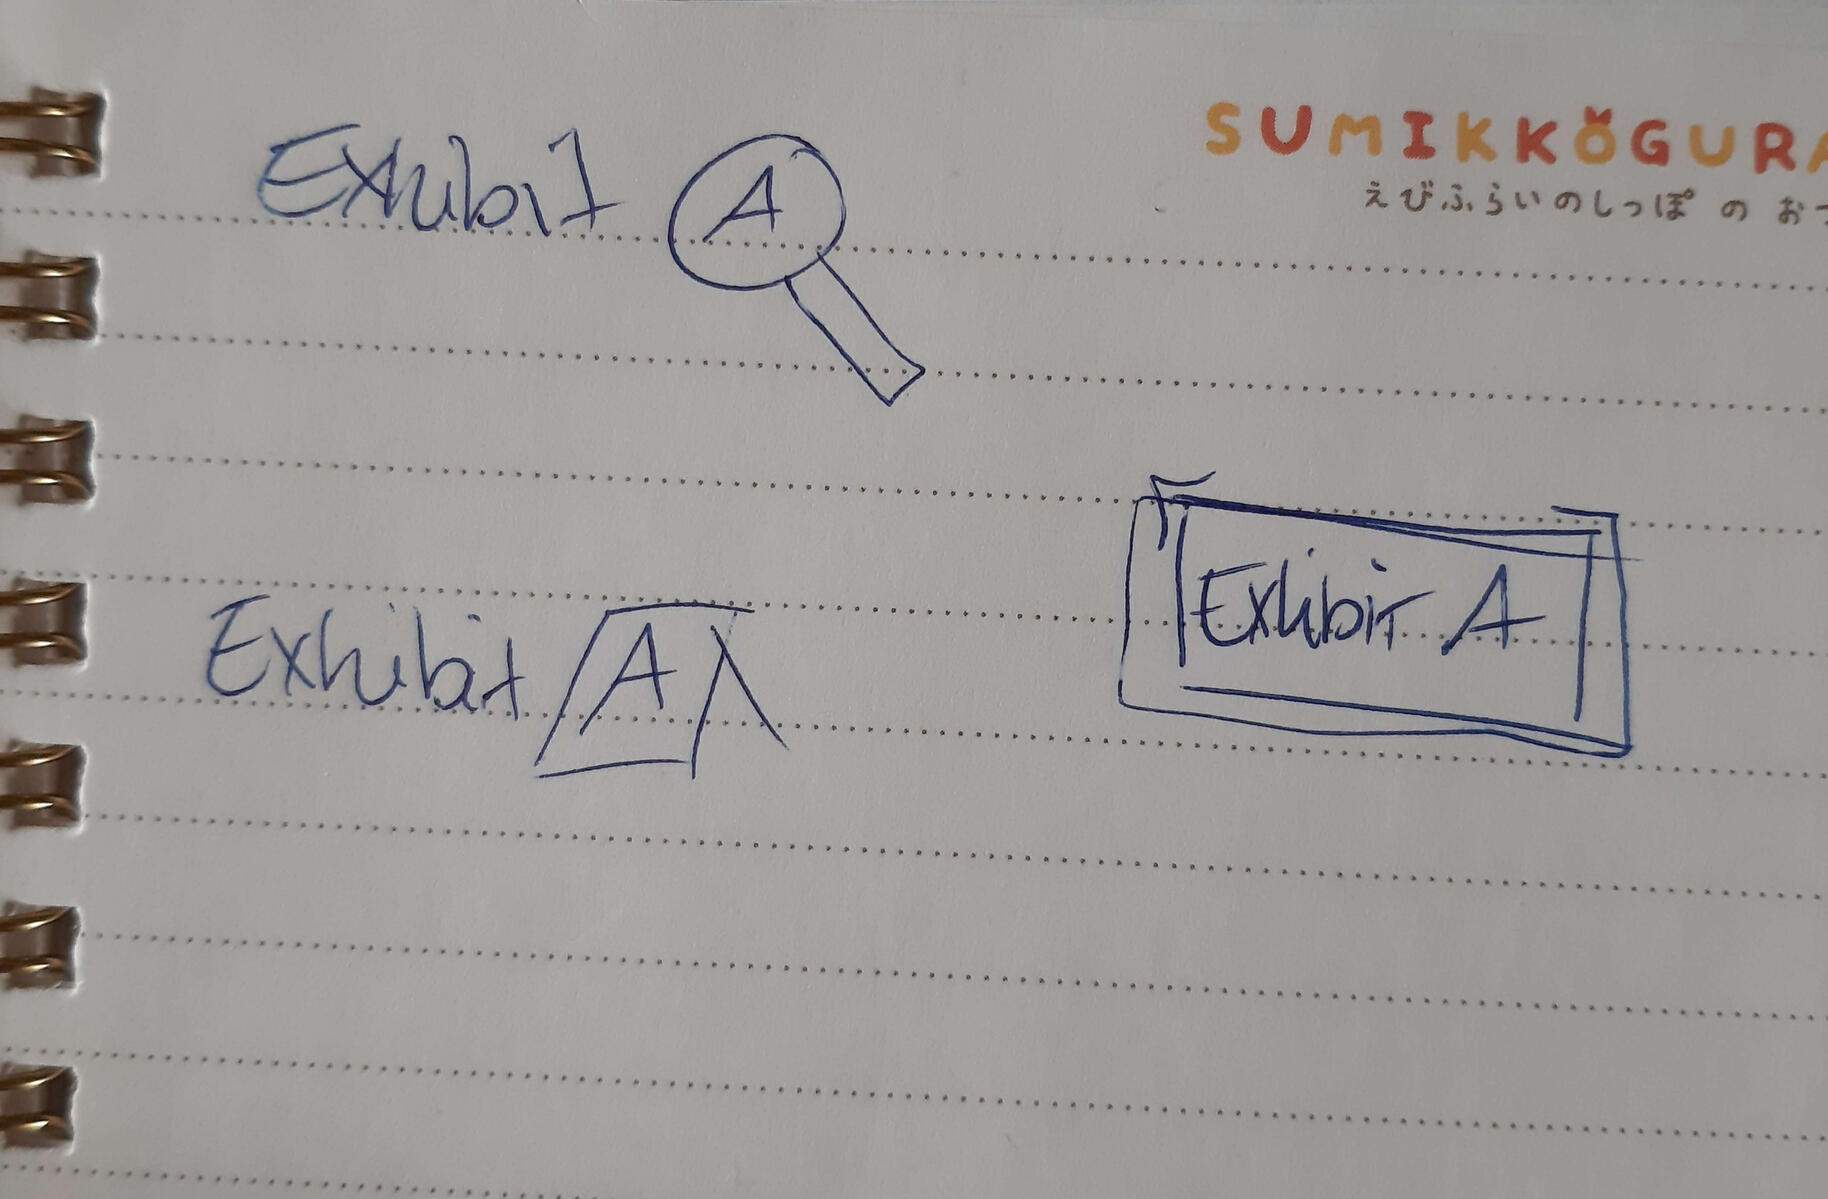 SUMIKKOGURA
えびふらいのしっぽ の お
Exhibit A
Exhibit A
Exhibit A